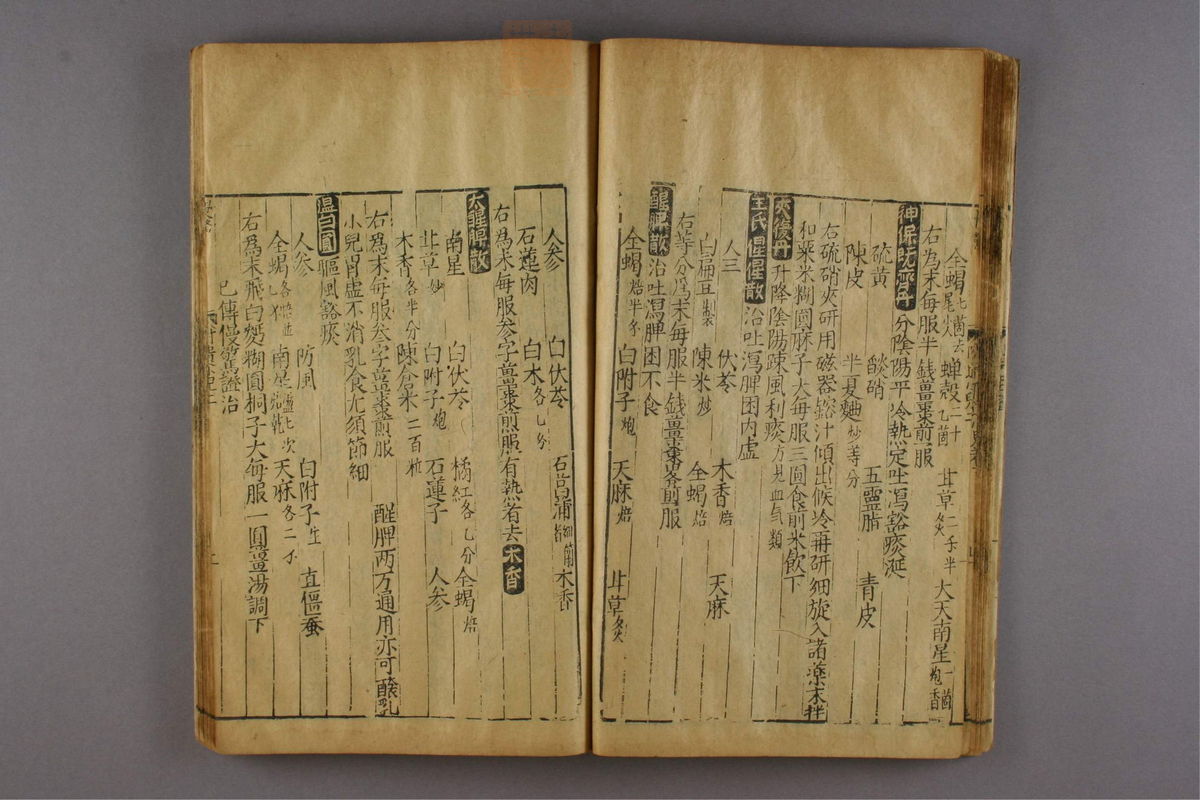 全蝎七尾焙去 蟬殼二十乙箇 甘草炙二錢半 大天南星一箇炮香
右為末每服半錢薑棗煎服
神保既濟丹 分陰陽平冷熱定吐瀉豁痰涎
硫黄 燄硝 五靈脂 青皮
陳皮 半夏麯炒等分
右硫硝夾研用磁器鎔汁傾出候冷再研細旋入諸藥末拌
和粟米糊圓麻子大每服三圓食前米飲下
來復丹 升降陰陽踈風利痰方見血氣類
王氏惺惺散 治吐瀉脾困内虚
人三 伏苓 木香焙 天麻
白扁豆製 陳米炒 全蝎焙
右等分爲末每服半錢薑棗煎服
醒脾散 治吐瀉脾困不食
全蝎焙半錢 白附子炮 天麻焙 甘草炙
人參 白伏苓 石菖蒲細節者 木香
石蓮肉 白术各乙分
右為末每服參字薑棗煎服有熱者去木香
大醒脾散
南星 白伏苓 橘紅各乙分 全蝎焙
甘草炒 白附子炮 石蓮子 人參
木香各半分 陳倉米二百粒
右為末每服參字薑棗煎服 醒脾两方通用亦可釀乳
小兒胃虚不消乳食尤須節細
温白圓 驅風豁痰
人參 防風 白附子生 直僵蚕
全蝎各焙乙錢 南星 天麻各二錢
右爲末飛白麪糊圓桐子大每服一圓薑湯調下
已傳慢驚證治